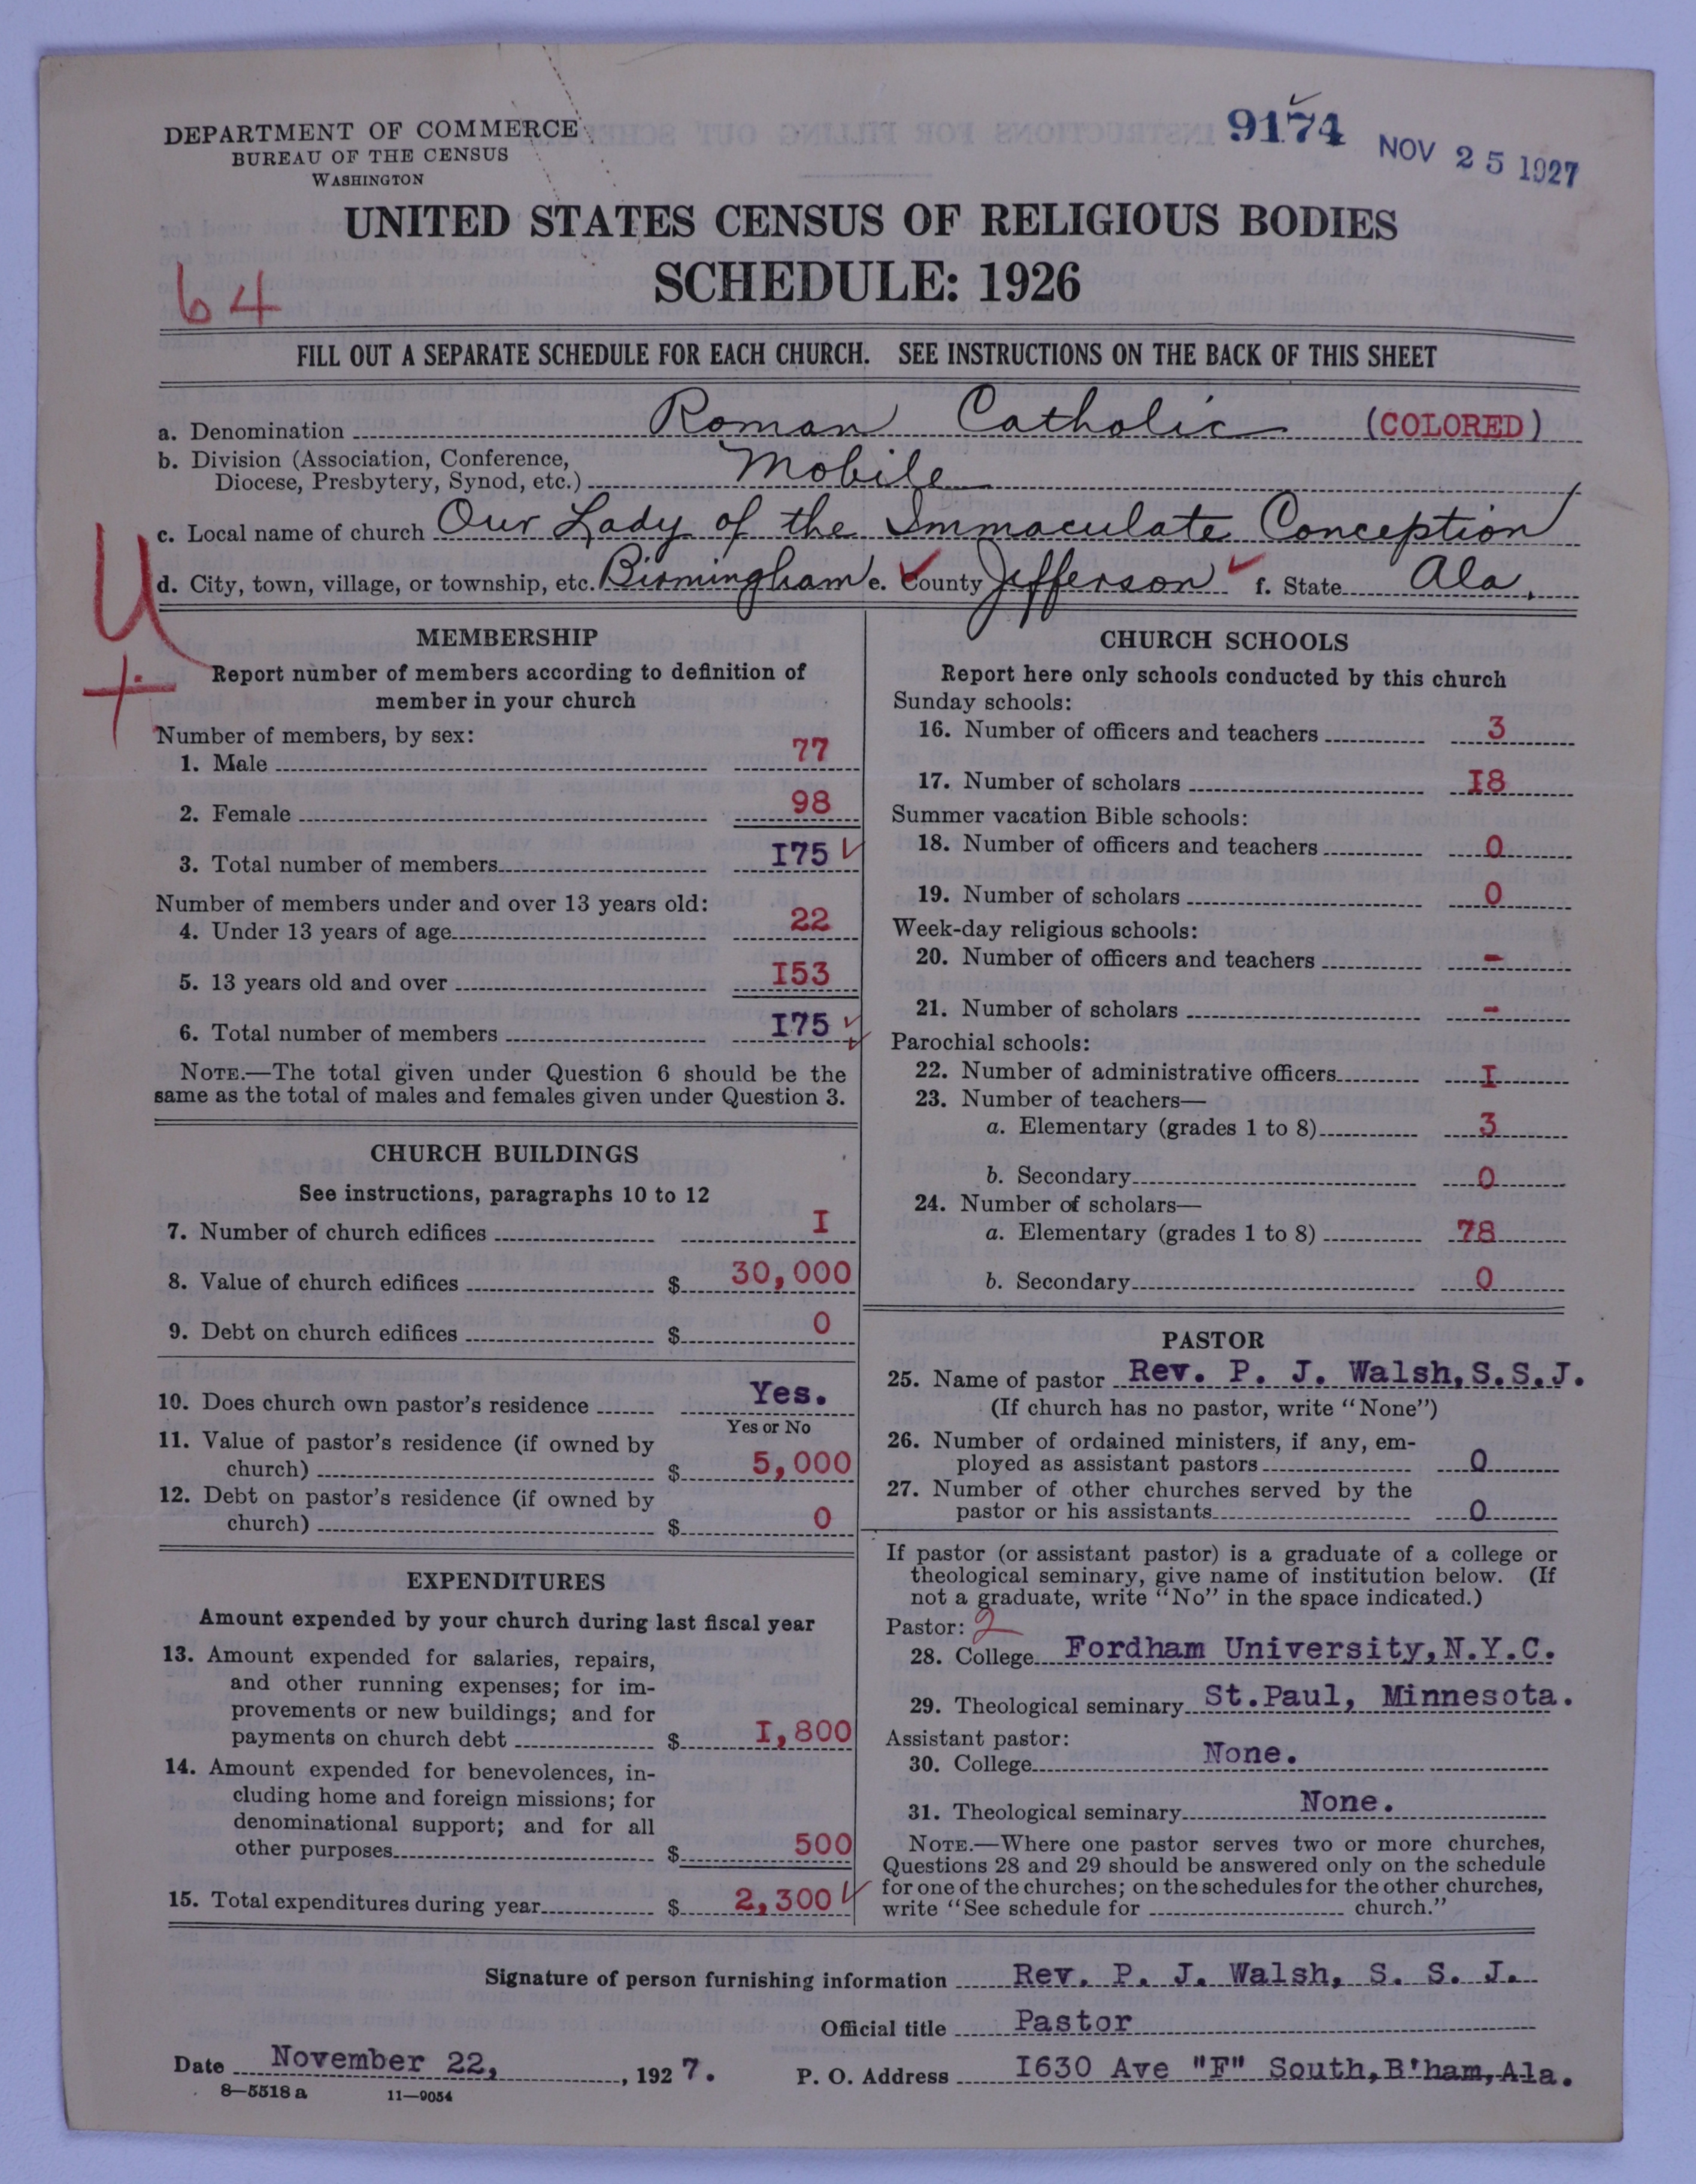 9174
NOV 25 1927
DEPARTMENT OF COMMERCE
BUREAU OF THE CENSUS
WASHINGTON
UNITED STATES CENSUS OF RELIGIOUS BODIES
SCHEDULE: 1926
64
FILL OUT A SEPARATE SCHEDULE FOR EACH CHURCH. SEE INSTRUCTIONS ON THE BACK OF THIS SHEET
a. Denomination Roman Catholic (COLORED)
b. Division (Association, Conference,
Diocese, Presbytery, Synod, etc.) Mobile
c. Local name of church Our Lady of the Immaculate Conception
d. City, town, village, or township, etc. Birmingham e. County Jefferson f. State Ala.
U
+
MEMBERSHIP
Report number of members according to definition of
member in your church
Number of members, by sex:
1. Male 77
2. Female 98
3. Total number of members 175
Number of members under and over 13 years old:
4. Under 13 years of age 22
5. 13 years old and over 153
6. Total number of members 175
NOTE.—The total given under Question 6 should be the
same as the total of males and females given under Question 3.
CHURCH BUILDINGS
See instructions, paragraphs 10 to 12
7. Number of church edifices I
8. Value of church edifices $ 30,000
9. Debt on church edifices $ 0
10. Does church own pastor's residence Yes.
Yes or No
11. Value of pastor's residence (if owned by
church) $ 5,000
12. Debt on pastor's residence (if owned by
church) $ 0
EXPENDITURES
Amount expended by your church during last fiscal year
13. Amount expended for salaries, repairs,
and other running expenses; for im-
provements or new buildings; and for
payments on church debt $ I,800
14. Amount expended for benevolences, in-
cluding home and foreign missions; for
denominational support; and for all
other purposes $ 500
15. Total expenditures during year $ 2,300
CHURCH SCHOOLS
Report here only schools conducted by this church
Sunday schools:
16. Number of officers and teachers 3
17. Number of scholars I8
Summer vacation Bible schools:
18. Number of officers and teachers 0
19. Number of scholars 0
Week-day religious schools:
20. Number of officers and teachers -
21. Number of scholars -
Parochial schools:
22. Number of administrative officers I
23. Number of teachers—
a. Elementary (grades 1 to 8) 3
b. Secondary 0
24. Number of scholars—
a. Elementary (grades 1 to 8) 78
b. Secondary 0
PASTOR
25. Name of pastor Rev. P. J. Walsh, S.S.J.
(If church has no pastor, write "None")
26. Number of ordained ministers, if any, em-
ployed as assistant pastors 0
27. Number of other churches served by the
pastor or his assistants 0
If pastor (or assistant pastor) is a graduate of a college or
theological seminary, give name of institution below. (If
not a graduate, write "No" in the space indicated.)
Pastor: 2
28. College Fordham University, N.Y.C.
29. Theological seminary St.Paul, Minnesota.
Assistant pastor:
30. College None.
31. Theological seminary None.
NOTE.—Where one pastor serves two or more churches,
Questions 28 and 29 should be answered only on the schedule
for one of the churches; on the schedules for the other churches,
write "See schedule for church."
Signature of person furnishing information Rev. P. J. Walsh, S. S. J.
Official title Pastor
Date November 22, , 1927.
P. O. Address I630 Ave "F" South, B'ham, Ala.
8—5518 a 11—9054